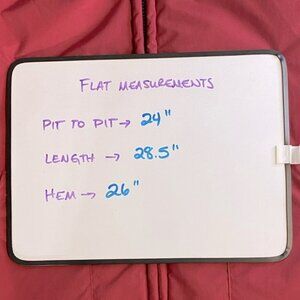 FLAT MEASUREMENTS
PIT TO PIT → 24"
LENGTH → 28.5"
HEM → 26"